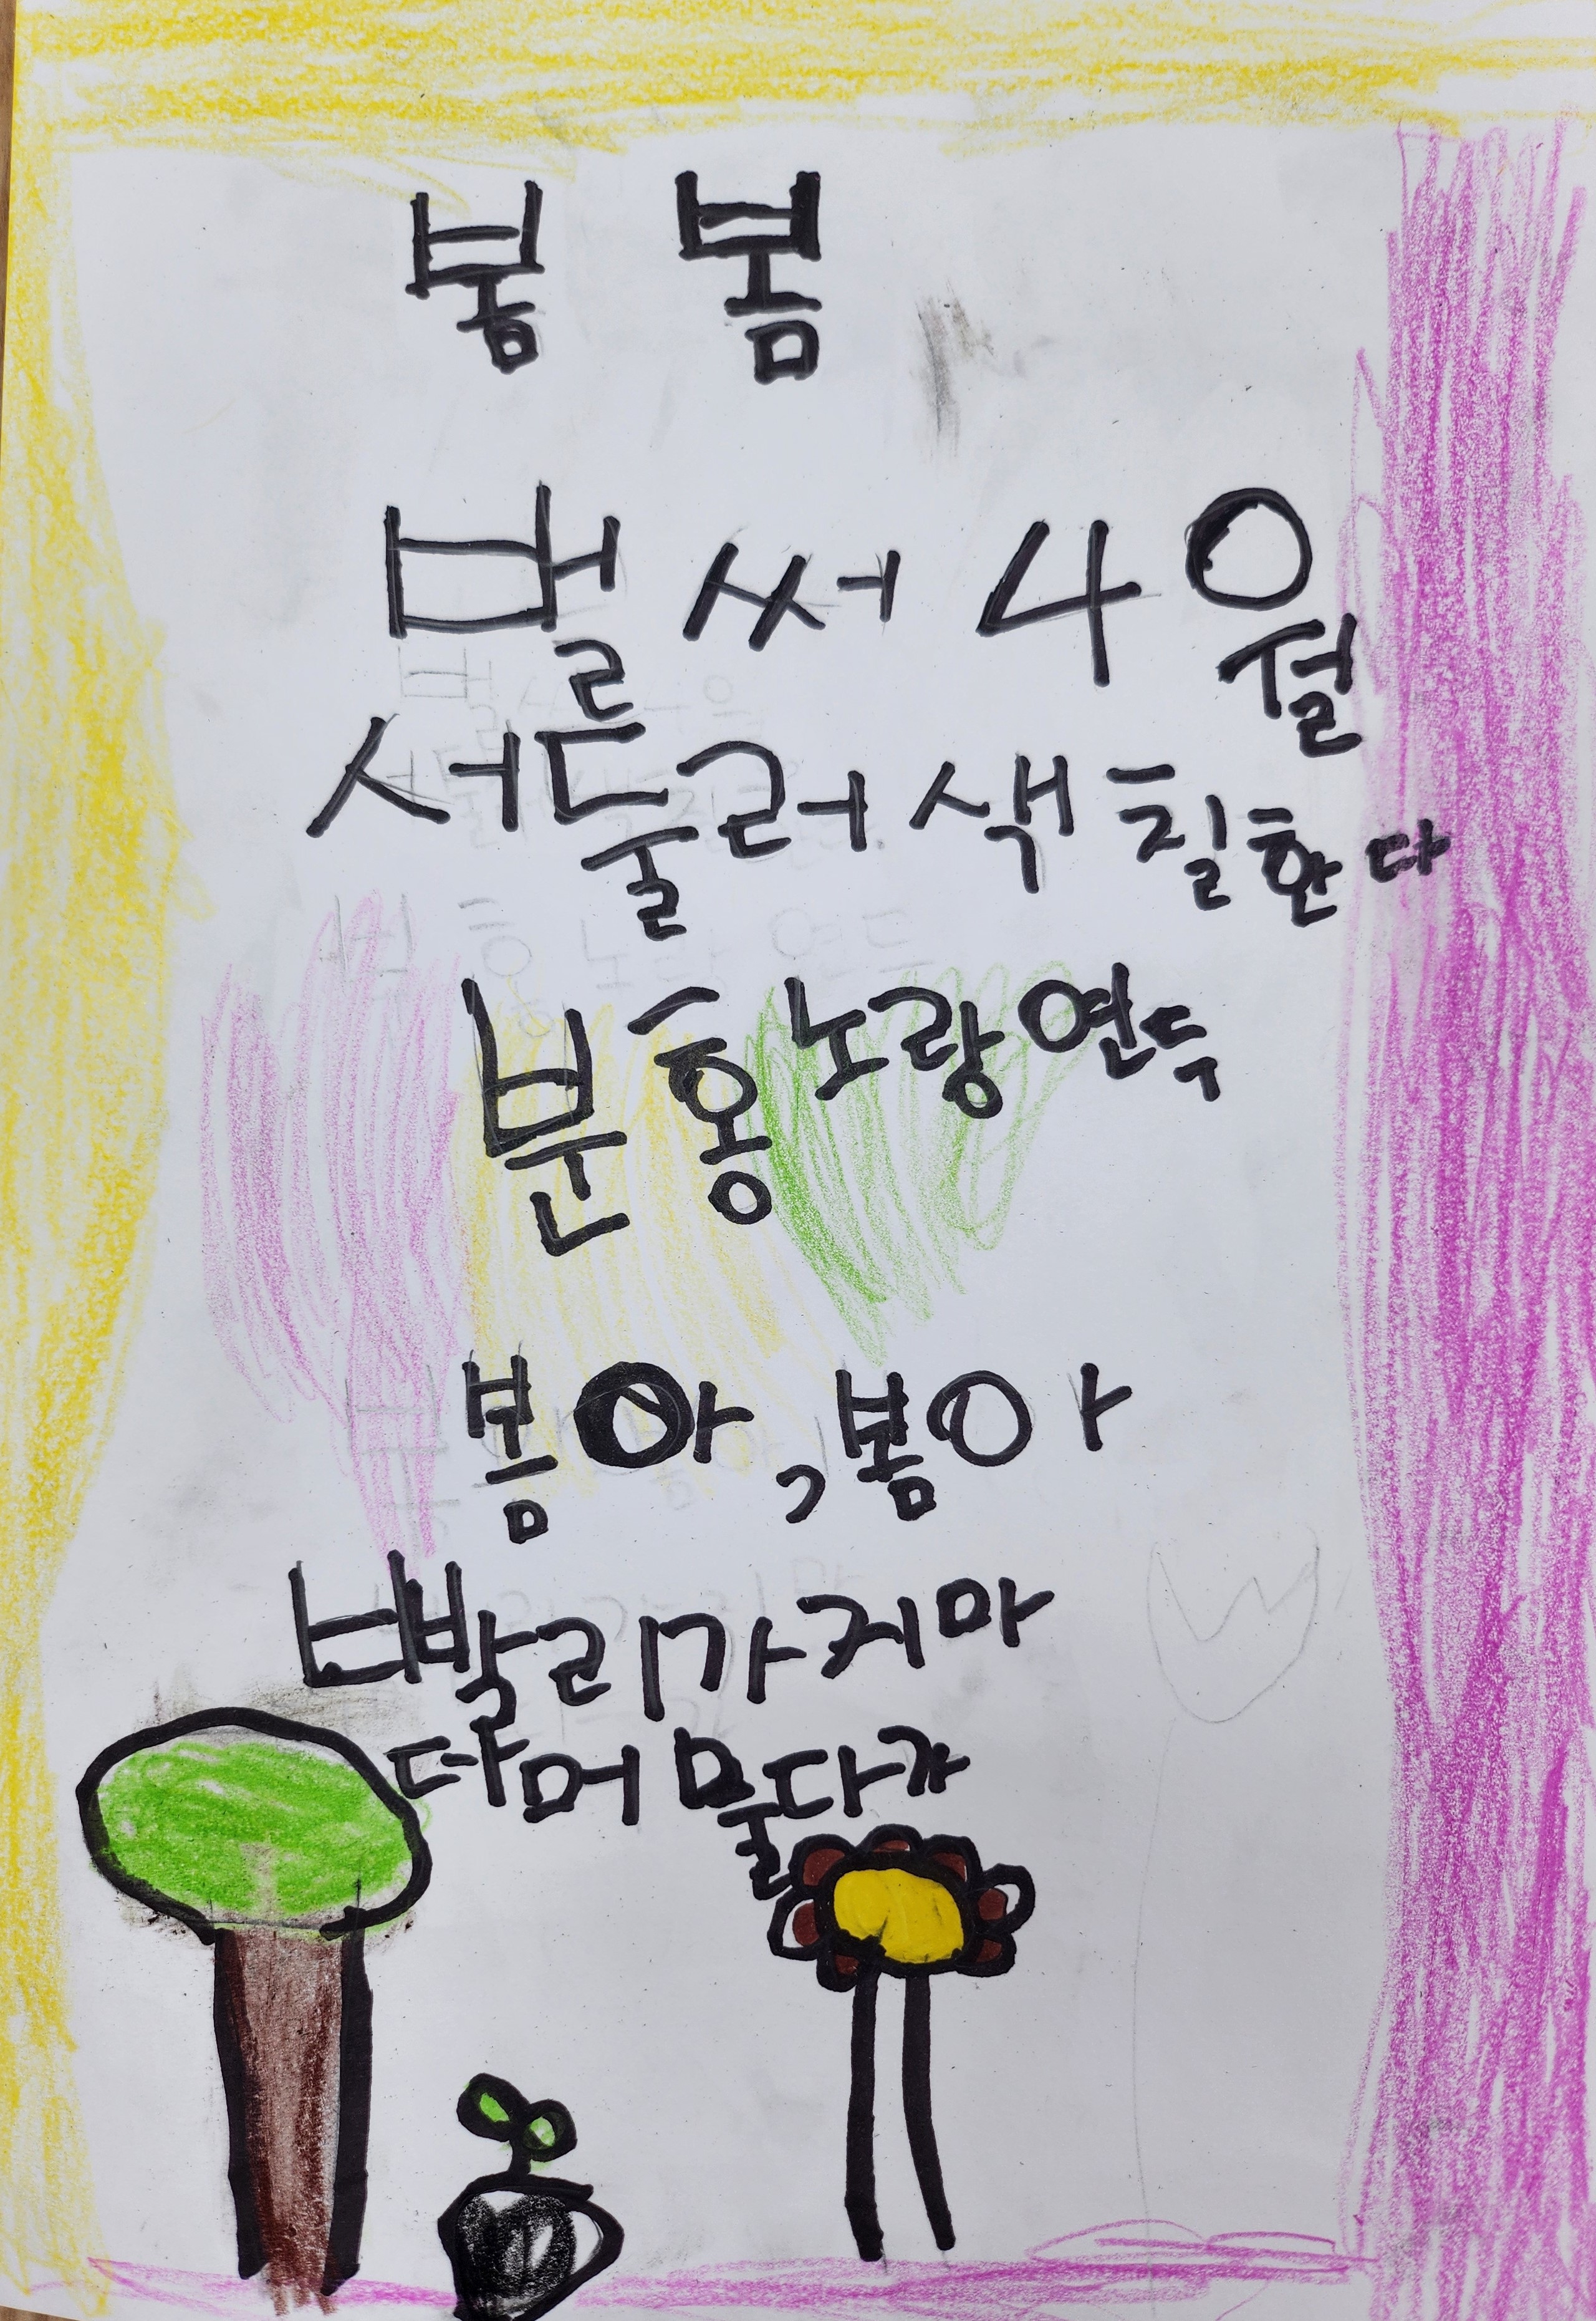 봄 봄
벌써 4월
서둘러 색칠한다
분홍 노랑 연두
봄아, 봄아
빨리 가지마
더 머물다가